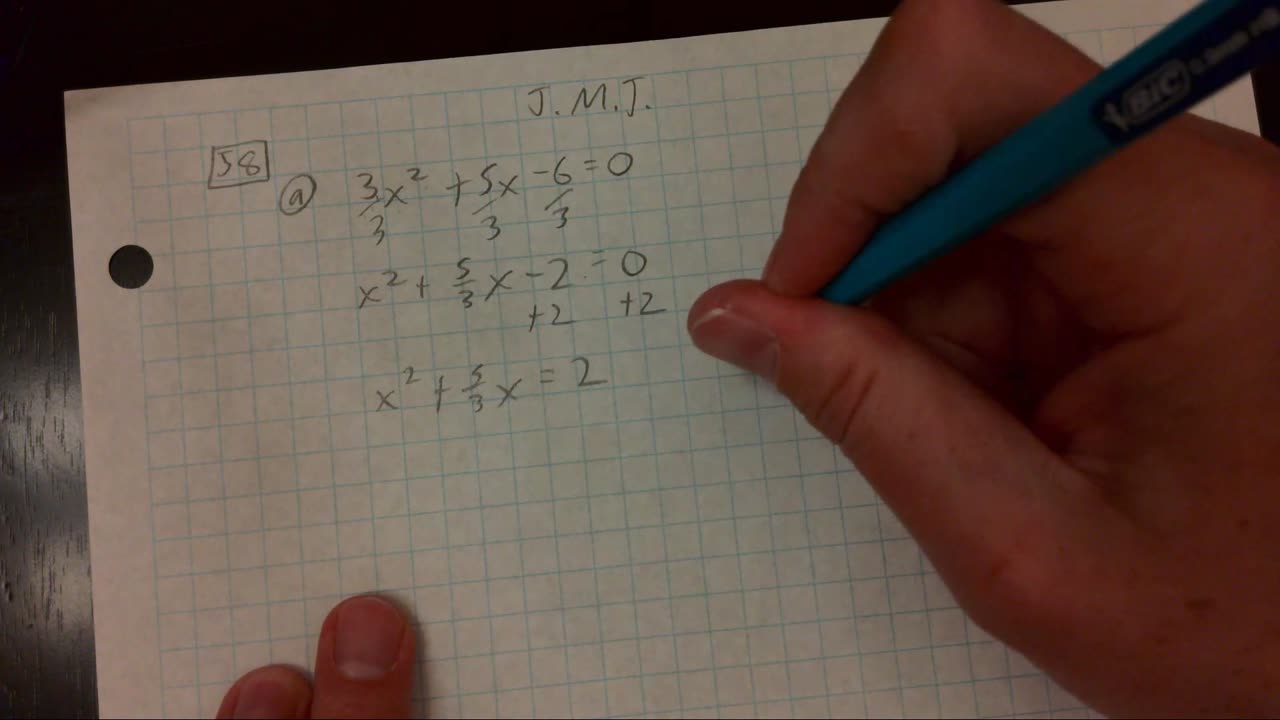 J.M.J.
58
(a) 3/3 x² + 5/3 x - 6/3 = 0
x² + 5/3 x - 2 = 0
+2 +2
x² + 5/3 x = 2
BIC